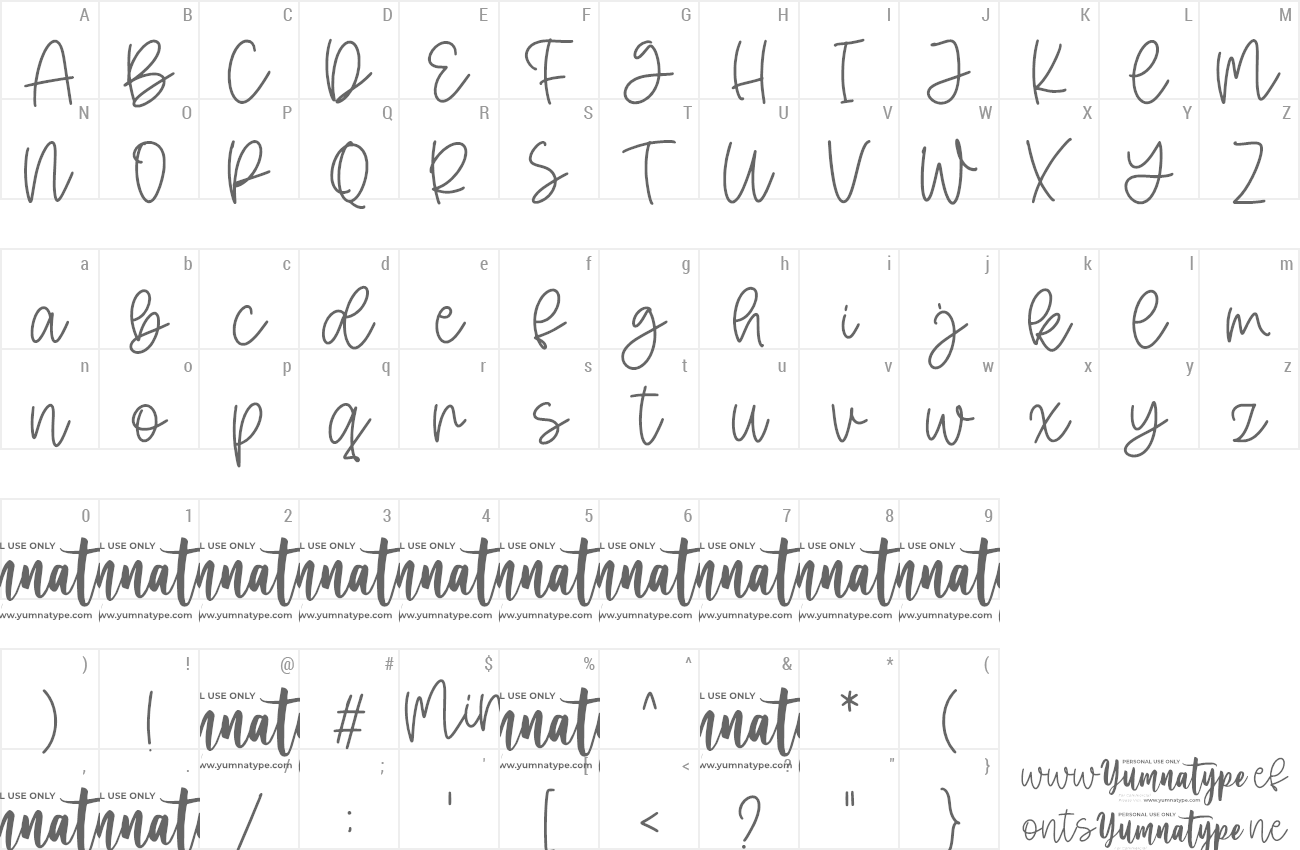 A B C D E F G H I J K L M
A B C D E F G H I J K L M
N O P Q R S T U V W X Y Z
N O P Q R S T U V W X Y Z
a b c d e f g h i j k l m
a b c d e f g h i j k l m
n o p q r s t u v w x y z
n o p q r s t u v w x y z
0 1 2 3 4 5 6 7 8 9
L USE ONLY L USE ONLY L USE ONLY L USE ONLY L USE ONLY L USE ONLY L USE ONLY L USE ONLY L USE ONLY L USE ONLY
nnat nnat nnat nnat nnat nnat nnat nnat nnat nnat
ww.yumnatype.com ww.yumnatype.com ww.yumnatype.com ww.yumnatype.com ww.yumnatype.com ww.yumnatype.com ww.yumnatype.com ww.yumnatype.com ww.yumnatype.com ww.yumnatype.com
) ! @ # $ % ^ & * (
L USE ONLY L USE ONLY L USE ONLY
) ! nnat # Min nnat ^ nnat * (
ww.yumnatype.com ww.yumnatype.com ww.yumnatype.com
, . / ; ' [ < ? " }
L USE ONLY L USE ONLY
nnat nnat / : ' [ < ? " }
PERSONAL USE ONLY
www Yumnatype ef
www.yumnatype.com
PERSONAL USE ONLY
onts Yumnatype ne